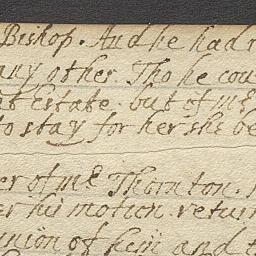 Bishop. And he had n
any other. Tho he cou
nt Estate. but of Mr
to stay for her she be
er of Mr Thornton.
er his motion. retur
union of him and t